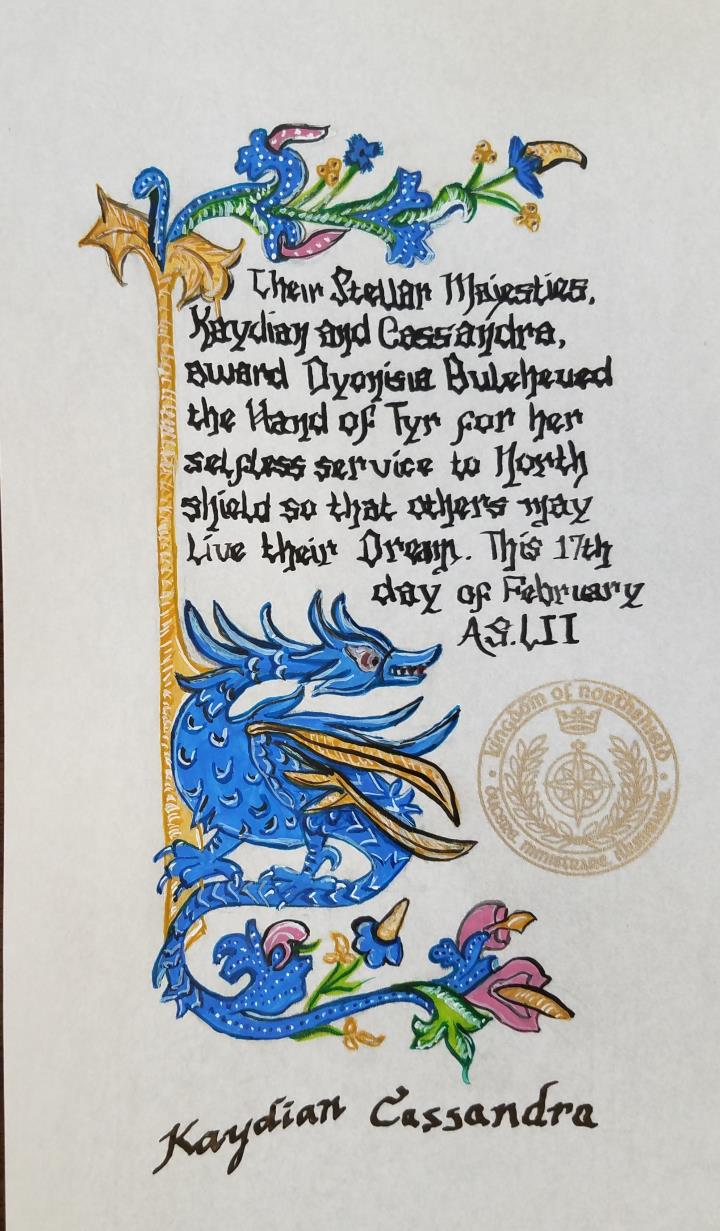 Their Stellar Majesties,
Kaydian and Cassandra,
award Dyonisia Buleheued
the Hand of Tyr for her
selfless service to North
shield so that others may
Live their Dream. This 17th
day of February
A.S.LII
Kingdom of Northshield
Kaydian Cassandra